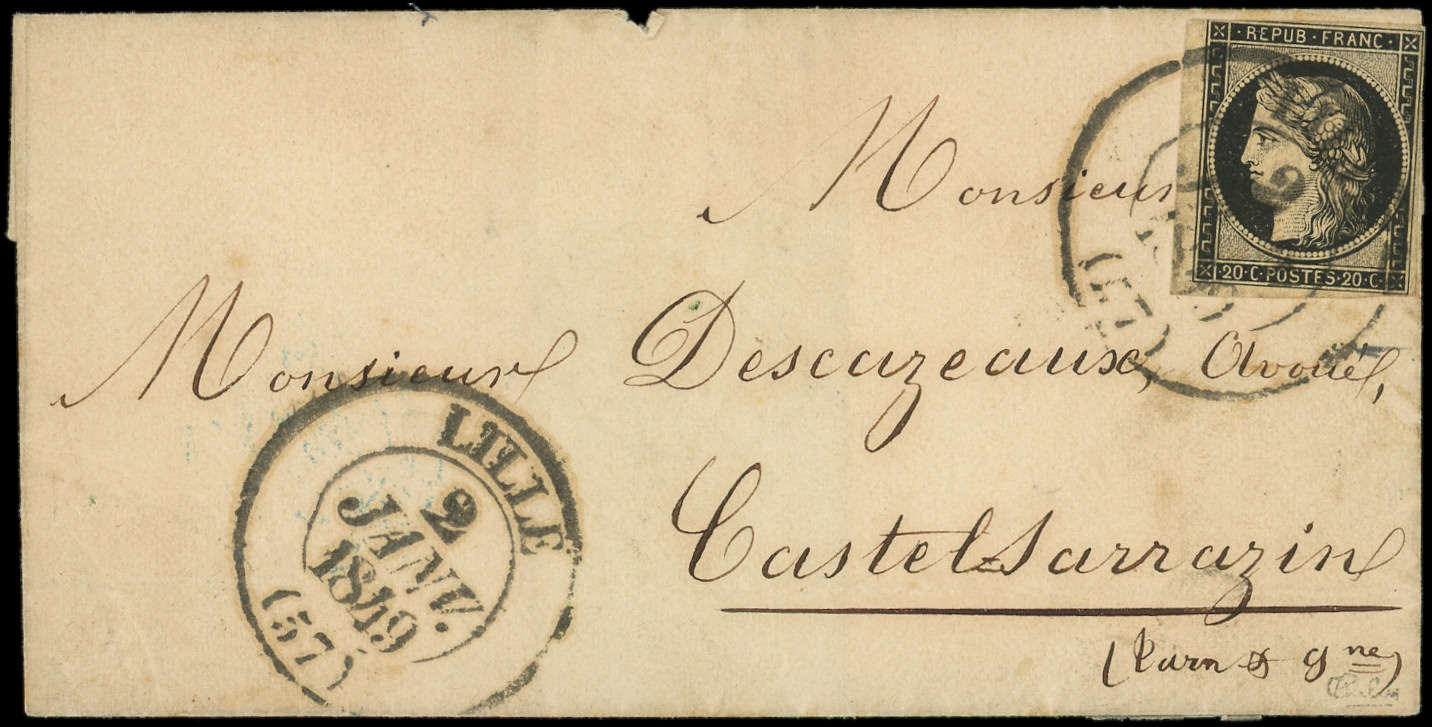 · REPUB · FRANC ·
Monsieur
· 20 · C · POSTES · 20 · C ·
2
(57)
Monsieur Descazeaux, Avoué,
Castelsarrazin
(Tarn & Gne)
LILLE
2
JANV.
1849
(57)